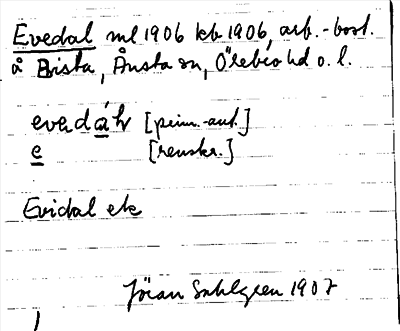 Evedal ml 1906 kb 1906, arb.-bost.
å Bista, Ånsta sn, Örebro hd o. l.
evadáḷ [prim.-aut.]
e [renskr.]
Evidal ek
Jöran Sahlgren 1907